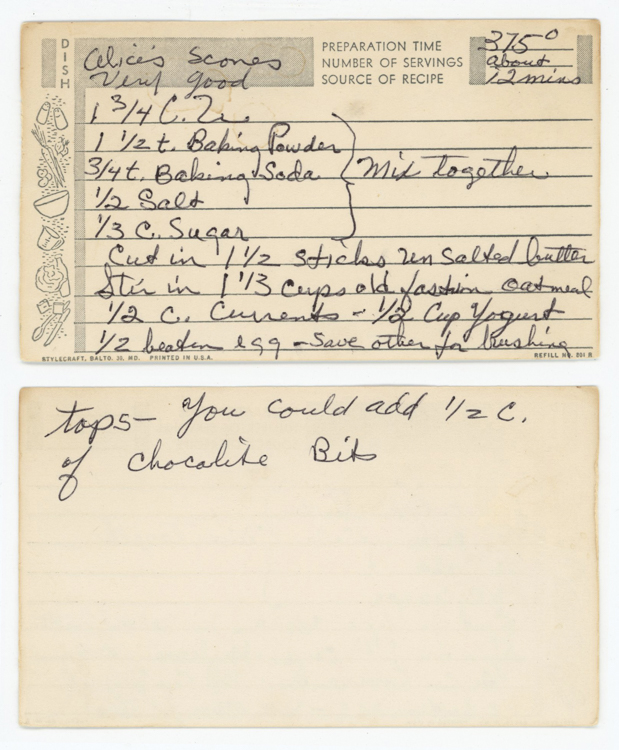 DISH
Alice's Scones
Very good
PREPARATION TIME
NUMBER OF SERVINGS
SOURCE OF RECIPE
375°
about
12 mins
1 3/4 C.
1 1/2 t. Baking Powder
3/4 t. Baking Soda
Mix together
1/2 Salt
1/3 C. Sugar
Cut in 1 1/2 sticks unsalted butter
Stir in 1 1/3 cups old fashion oatmeal
1/2 C. Currents - 1/2 Cup Yogurt
1/2 beaten egg - save other for brushing
STYLECRAFT, BALTO. 30, MD. PRINTED IN U.S.A.
REFILL NO. 201 R
tops - You could add 1/2 C.
of chocalite Bits